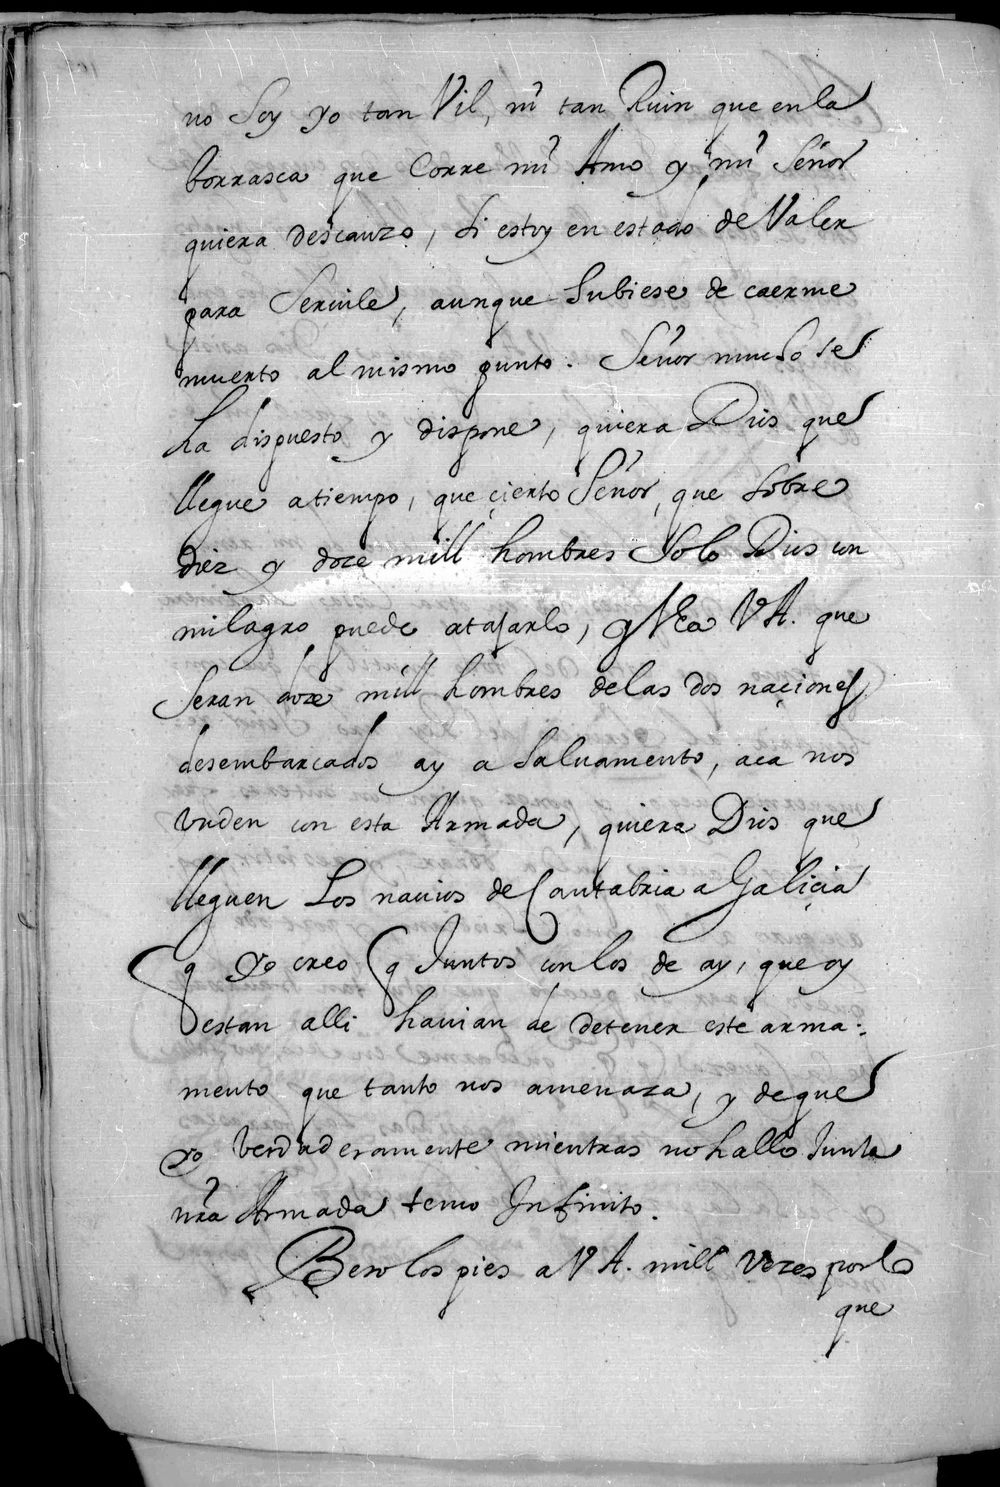 no Soy yo tan Vil, ni tan Ruin que en la
borrasca que Corre mi Amo y mi Señor
quiera descanzo, si estoy en estado de Valer
para Seruile, aunque hubiese de caerme
muerto al mismo punto. Señor mucho se
ha dispuesto y dispone, quiera Dios que
llegue a tiempo, que çierto Señor, que sobre
diez y doze mill hombres Solo Dios con
milagro puede atajarlo, VEa VA. que
Seran doze mill hombres de las dos naçiones
desembarcados ay a Saluamento, aca nos
vnden con esta Armada, quiera Dios que
lleguen Los nauios de Cantabria a Galiçia
q yo creo q Juntos con los de ay, que oy
estan alli hauian de detener este arma-
mento que tanto nos amenaza, y de que
yo Verdaderamente mientras no hallo Junta
nra Armada temo Infinito.
Beso los pies a VA. mill Vezes por lo
que